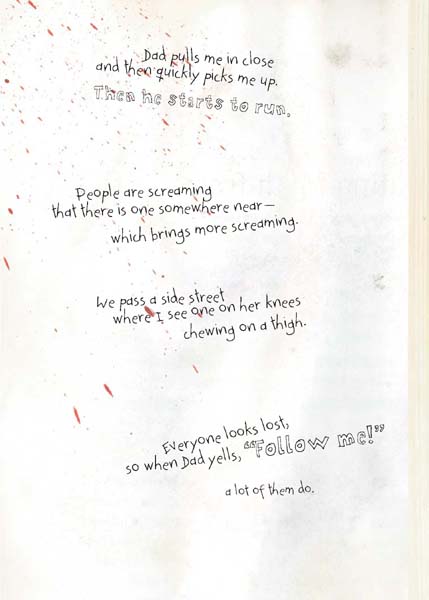 Dad pulls me in close
and then quickly picks me up.
Then he starts to run.
People are screaming
that there is one somewhere near—
which brings more screaming.
We pass a side street
where I see one on her knees
chewing on a thigh.
Everyone looks lost,
so when Dad yells, “Follow me!”
a lot of them do.